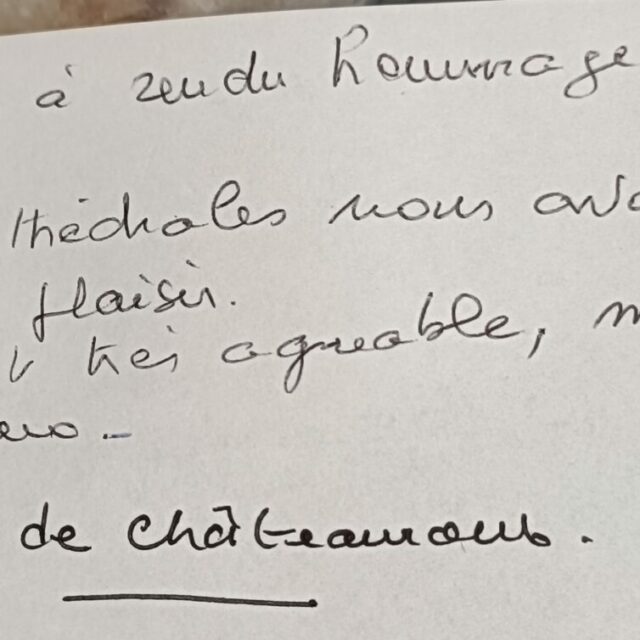 à rendu hommage
thédrales nous avo
plaisir.
très agréable, m
de châteauroux.